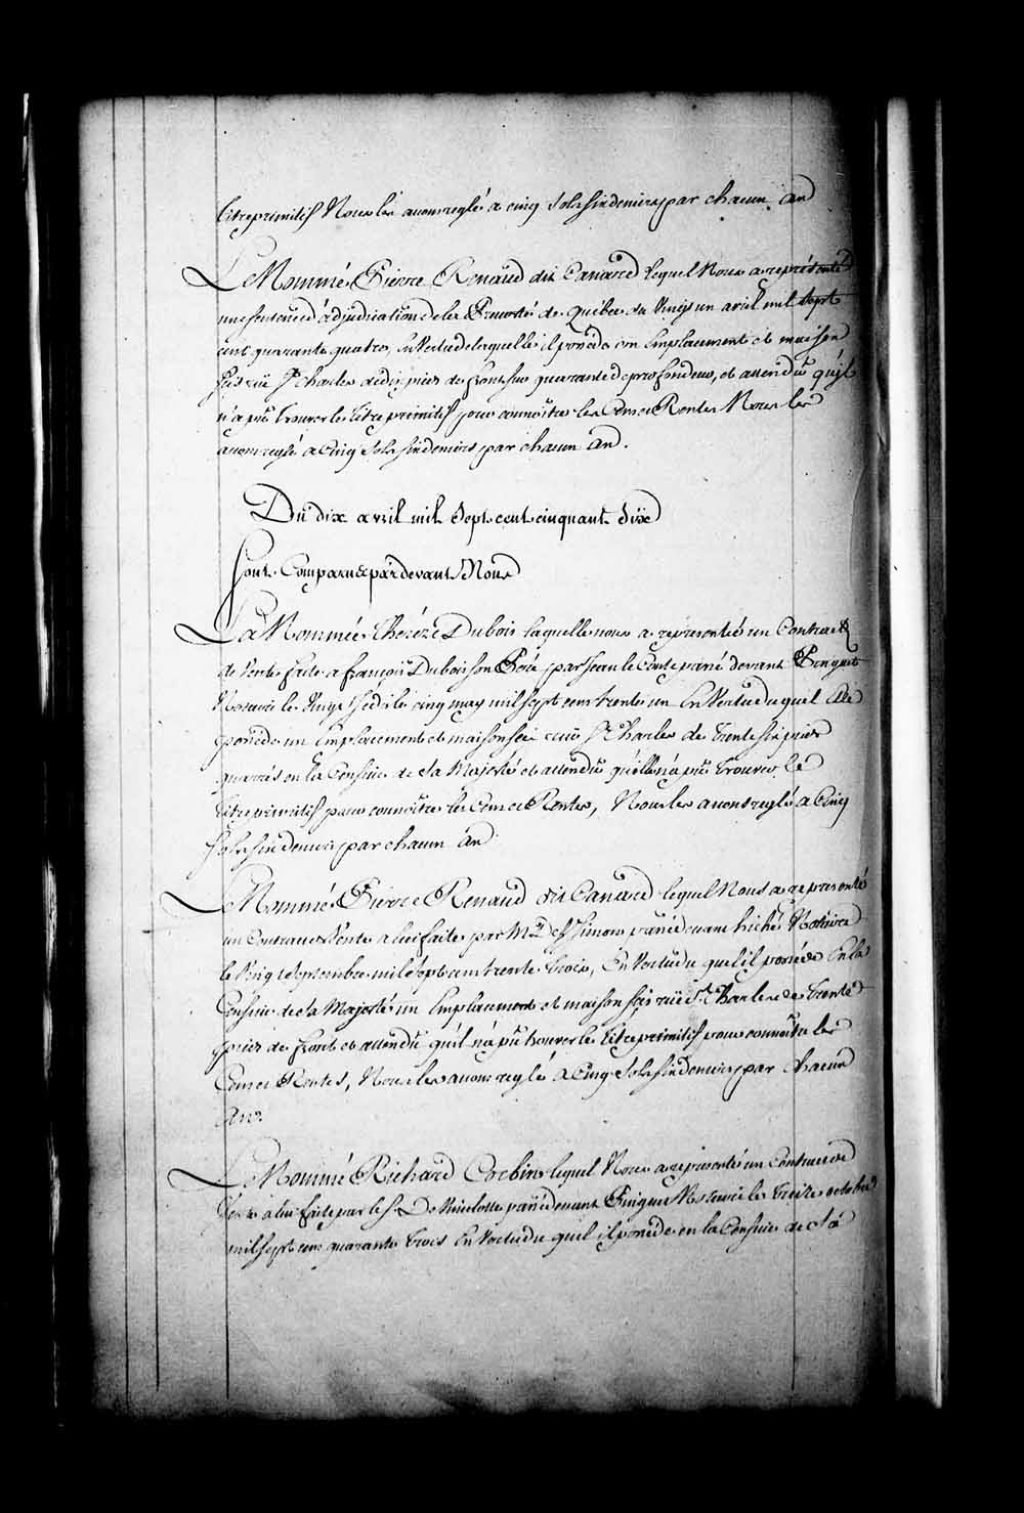 titre primitif Nous les avons reglé a cinq sols six deniers par chacun an
Le Nommé Pierre Renaud dit Canard lequel Nous a representé
une sentence d'adjudication de la Prevosté de Quebec du Vingt un avril mil sept
cent quarante quatre, En Vertu de laquelle il possede un Emplacement et maison
sis rüe St Charles de dix pieds de front sur quarante de profondeur, et attendu qu'il
n'a pû trouver le titre primitif pour connoître les Cens et Rentes Nous les
avons reglé a Cinq sols six deniers par chacun an.
Du dix avril mil sept cent cinquante six
Sont Comparus pardevant Nous
La Nommée Therèze Dubois laquelle nous a representé un Contract
de Vente faite a François Dubois son Pere par Jean le Comte passé devant Pinguet
Notaire le cinq may mil sept cent trente un En Vertu duquel Elle
possede un Emplacement et maison sis rüe St Charles de trente six pieds
quarrés en la Censive de Sa Majesté et attendu qu'elle n'a pû trouver le
titre primitif pour connoître les Cens et Rentes, Nous les avons reglé a Cinq
sols six deniers par chacun an
Le Nommé Pierre Renaud dit Canard lequel Nous a representé
un Contract de Vente a lui faite par passé devant hiché Notaire
le Vingt septembre mil sept cent trente trois, En Vertu duquel il possede En la
Censive de Sa Majesté un Emplacement et maison sis rüe St Charles de trente
pieds de front et attendu qu'il n'a pû trouver le titre primitif pour connoître les
Cens et Rentes, Nous les avons reglé a Cinq sols six deniers par chacun
An.
Le Nommé Richard Corbin lequel Nous a representé un Contract de
Vente à lui faite par le S. passé devant Pinguet Notaire le treize octobre
mil sept cent quarante trois En Vertu duquel il possede en la Censive de Sa